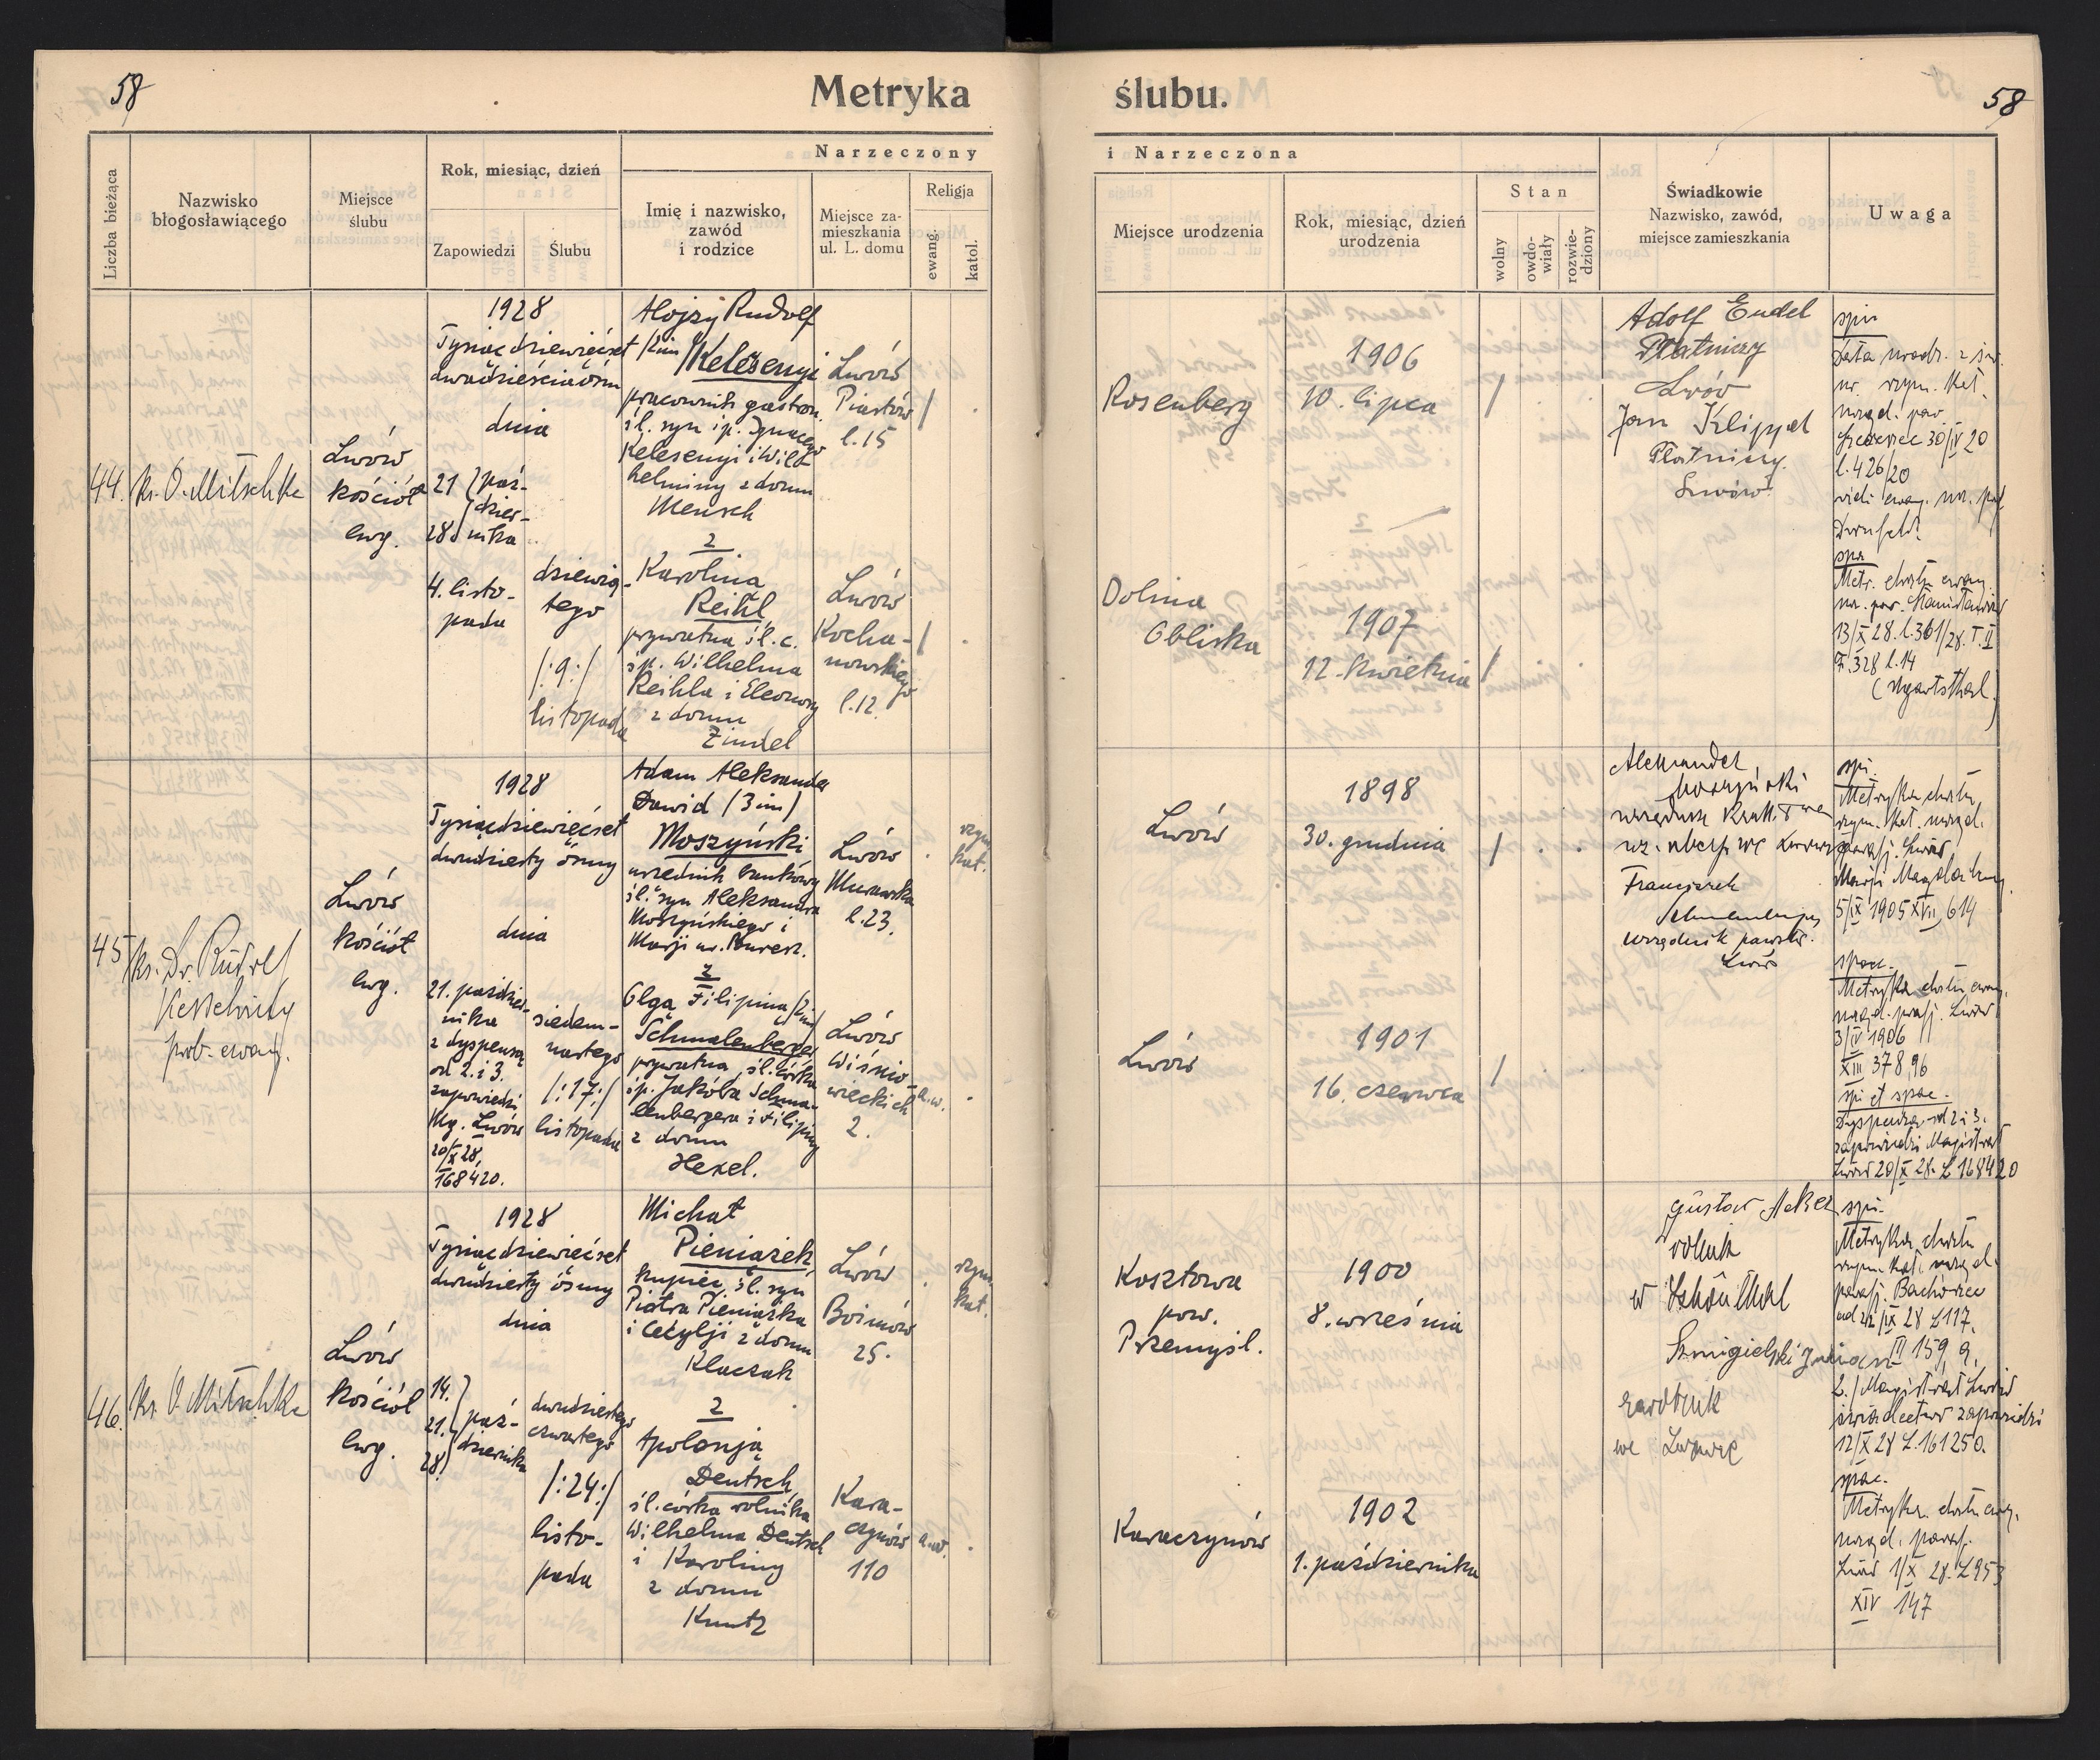 58
Metryka
ślubu.
58
Liczba bieżąca
Nazwisko
błogosławiącego
Miejsce
ślubu
Rok, miesiąc, dzień
Zapowiedzi
Ślubu
Narzeczony
Imię i nazwisko,
zawód
i rodzice
Miejsce za-
mieszkania
ul. L. domu
Religja
ewang.
katol.
i Narzeczona
Miejsce urodzenia
Rok, miesiąc, dzień
urodzenia
Stan
wolny
owdo-
wiały
rozwie-
dziony
Świadkowie
Nazwisko, zawód,
miejsce zamieszkania
Uwaga
44.
ks. O. Mitschke
Lwów
kościół
ewg.
1928
Tysiąc dziewięćset
dwadzieścia ośm
dnia
21 } paź-
dzier-
28 } nika
4. listo-
pada
dziewią-
tego
/:9:/
listopada
Alojzy Rudolf
/2im/ Kelesenyi
pracownik gastron.
śl. syn śp. Ignacego
Kelesenyi i Wil-
helminy z domu
Mensch
z
Karolina
Reihl
prywatna śl. c.
śp. Wilhelma
Reihla i Eleonory
z domu
Zindel
Lwów
Piastów
l. 15
Lwów
Kocha-
nowskiego
l. 12.
Rosenberg
1906
10. lipca
Dolina
Obliska
1907
12. kwietnia
Adolf Endel
Płatniczy
Lwów
Jan Klippel
Płatniczy.
Lwów
Data urodz. z
rzym. kat.
30/IV 20
l. 426/20
Metr. chrztu ewang.
13/X 28. l. 361/28. T. II
F. 328 l. 14
45
ks. Dr. Rudolf
Kesselring
prob. ewang.
Lwów
kościół
ewg.
1928
Tysiąc dziewięćset
dwudziesty ósmy
dnia
21. paździer-
nika
z dyspensą
od 2. i 3.
zapowiedzi
Mg. Lwów
20/X 28,
168420.
siedem-
nastego
/:17:/
listopada
Adam Aleksander
Dawid /3 im/
Moszyński
urzędnik bankowy
śl. syn Aleksandra
Moszyńskiego i
Marji ur.
z
Olgą Filipiną /2im/
Schmalenberger
prywatna, śl. córka
śp. Jakóba Schma-
lenbergera i Filipiny
z domu
Hexel.
Lwów
Murarska
l. 23.
Lwów
Wiśnio-
wieckich
2.
rzym
kat.
a.w.
Lwów
1898
30. grudnia
Lwów
1901
16. czerwca
Aleksander
Moszyński
Franciszek
Schmalenberger
urzędnik państw.
Lwów
Metryka chrztu
rzym. kat. urzęd.
paraf. Lwów
Marji Magdaleny
5/IX 1905 XVII, 614
Metryka chrztu ewang.
urzęd. paraf. Lwów
3/IV 1906
XIII 378, 96
spi et spae.
Dyspenza od 2 i 3.
zapowiedzi Magistrat
Lwów 20/X 28. L 168420
46.
ks. O. Mitschke
Lwów
kościół
ewg.
1928
Tysiąc dziewięćset
dwudziesty ósmy
dnia
14. }
21. } paź-
28. } dziernika
dwudziestego
czwartego
/:24:/
listo-
pada
Michał
Pieniążek
kupiec, śl. syn
Piotra Pieniążka
i Cecylji z domu
Klaczak
z
Apolonją
Deutsch,
śl. córka rolnika
Wilhelma Deutsch
i Karoliny
z domu
Kuntz
Lwów
Boimów
25.
Kara-
czynów
110
rzym
kat.
a.w.
Kosztowa
pow.
Przemyśl.
1900
8. września
Karaczynów
1902
1. października
Gustav Acker
rolnik
w Schönthal
Szmigielski Julian
zarobnik
we Lwowie
spi.
Metryka chrztu
rzym. kat. urzęd.
paraf. Bachórzec
ad 22/IX 28 L 117.
III 159, 9.
2./ Magistrat Lwów
świadectwo zapowiedzi
12/X 28 L. 161250.
spae.
Metryka chrztu ewg.
urzęd. paraf.
Lwów 1/X 28. L 953
XIV 147